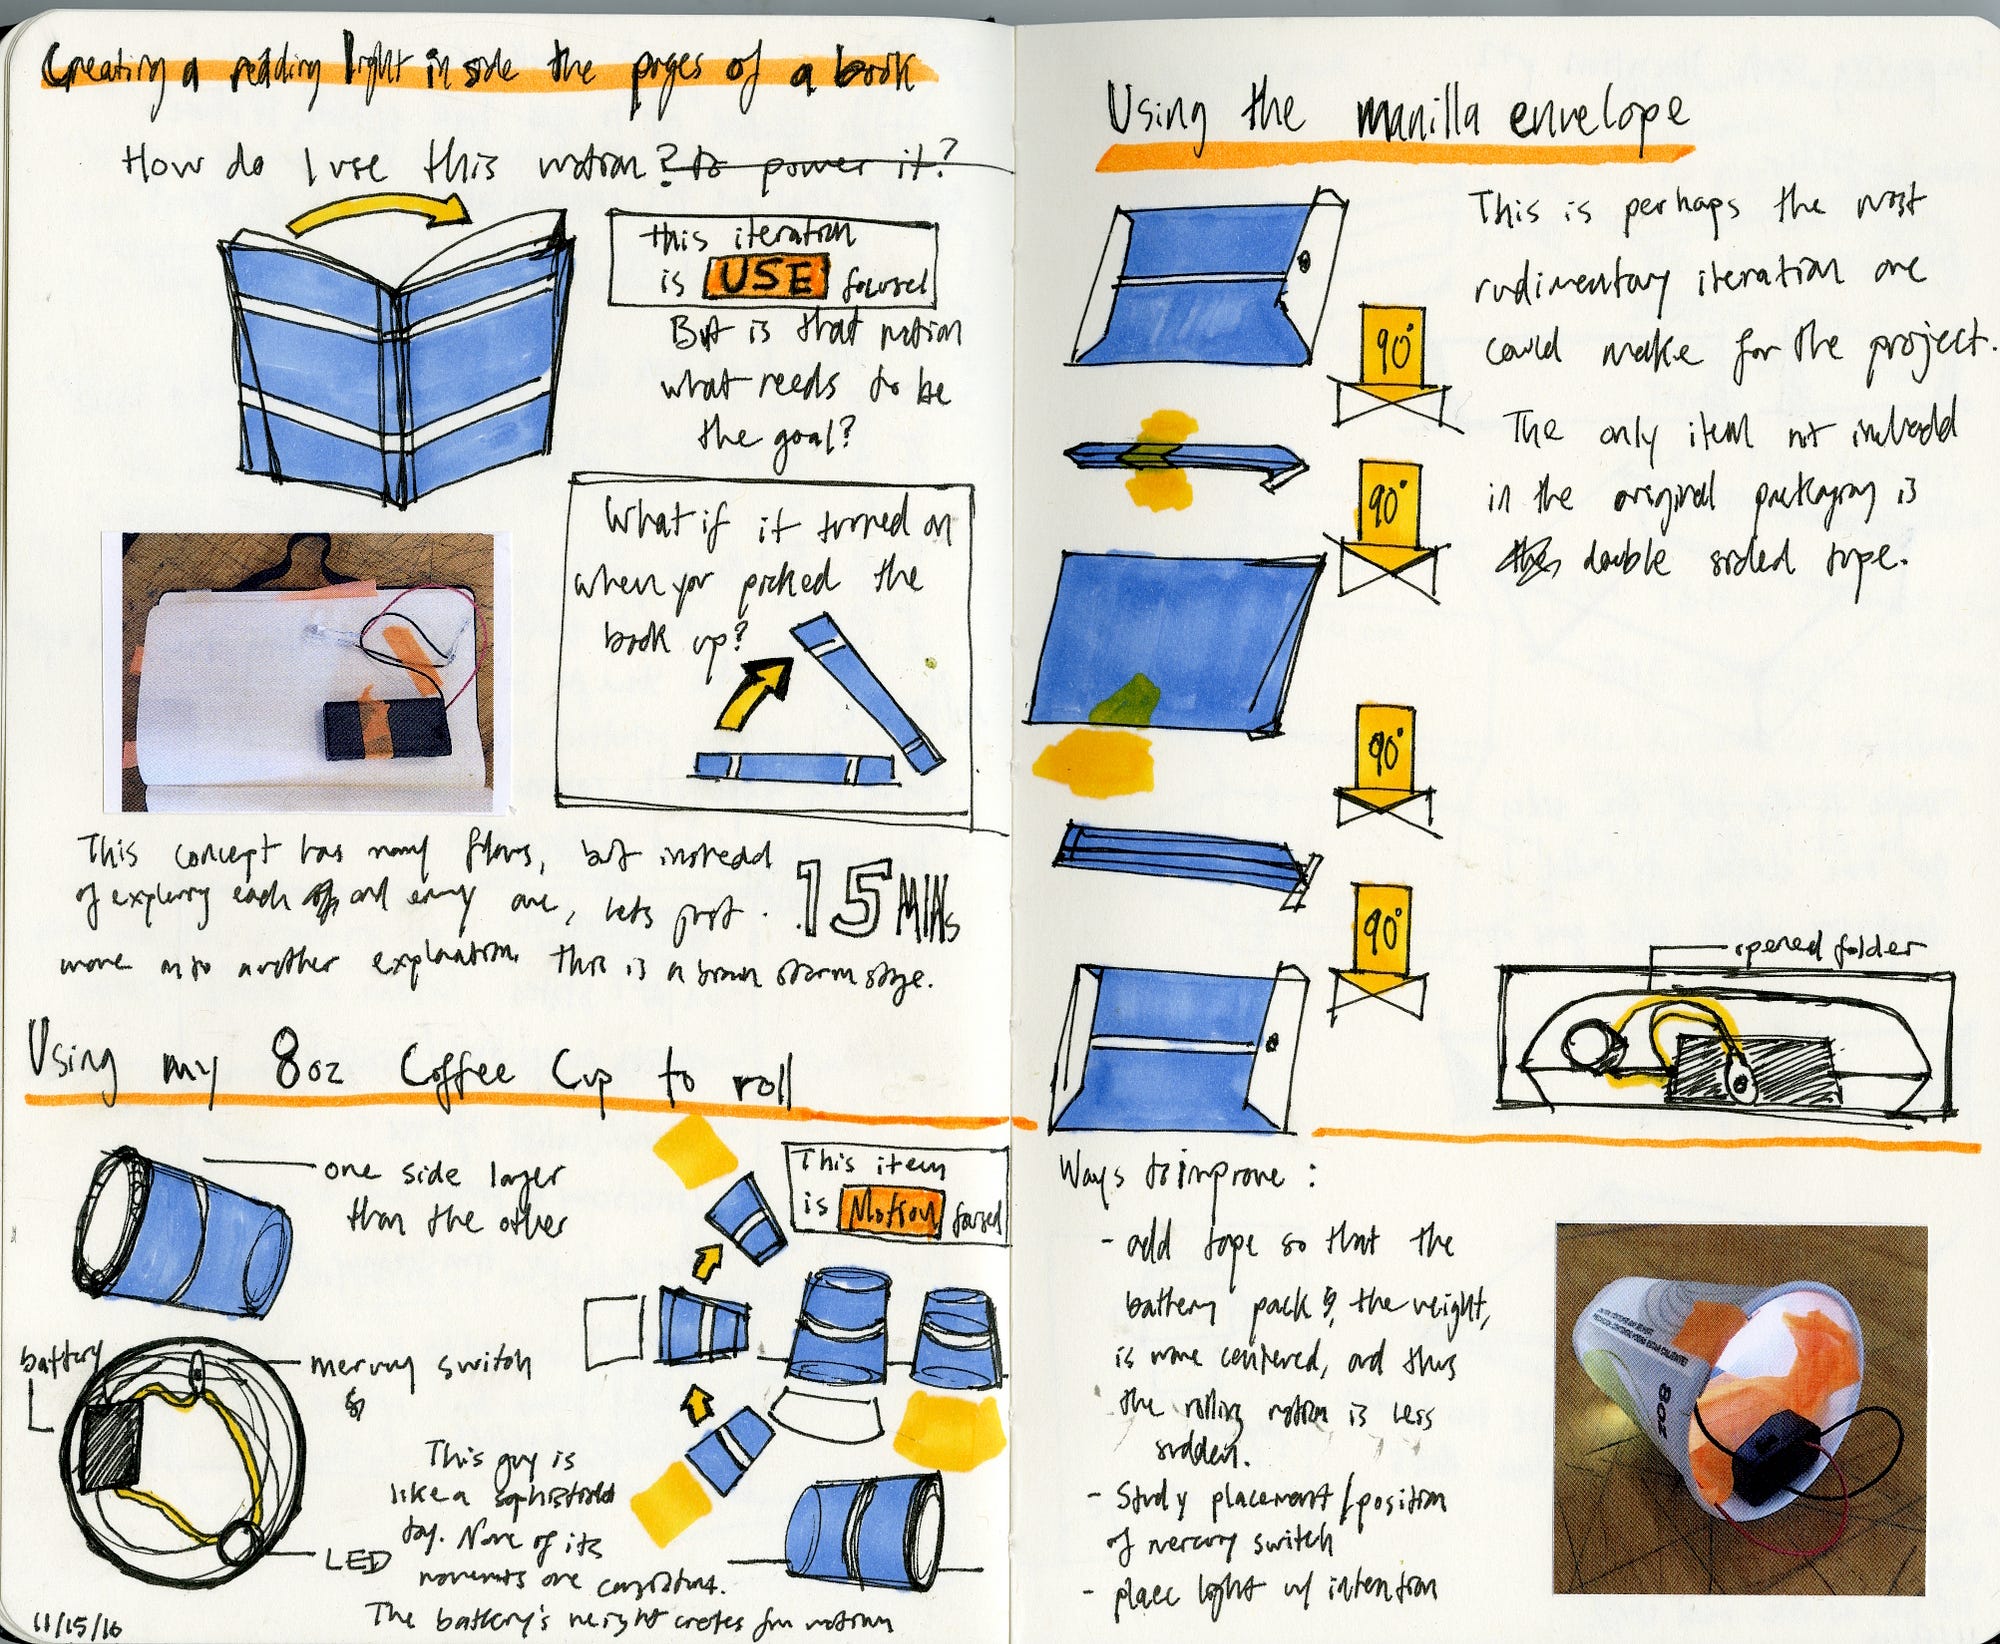 Creating a reading light inside the pages of a book
How do I use this motion? to power it?
this iteration
is USE focused
But is that motion
what needs to be
the goal?
What if it turned on
when you picked the
book up?
This concept has many flaws, but instead
of exploring each and every one, lets just
move onto another explanation. This is a brain storm stage.
15 MINs
Using my 8oz Coffee Cup to roll
one side layer
than the other
battery
mercury switch
This guy is
like a sophisticated
toy. None of its
movements are consistent.
The battery's weight creates fun motion
LED
This item
is Motion focused
11/15/16
Using the manilla envelope
This is perhaps the most
rudimentary iteration one
could make for the project.
The only item not included
in the original packaging is
double sided tape.
90°
90°
90°
90°
opened folder
Ways to improve:
- add tape so that the
battery pack & the weight,
is more centered, and thus
the rolling motion is less
sudden.
- Study placement/position
of mercury switch
- place light w/ intention
8oz